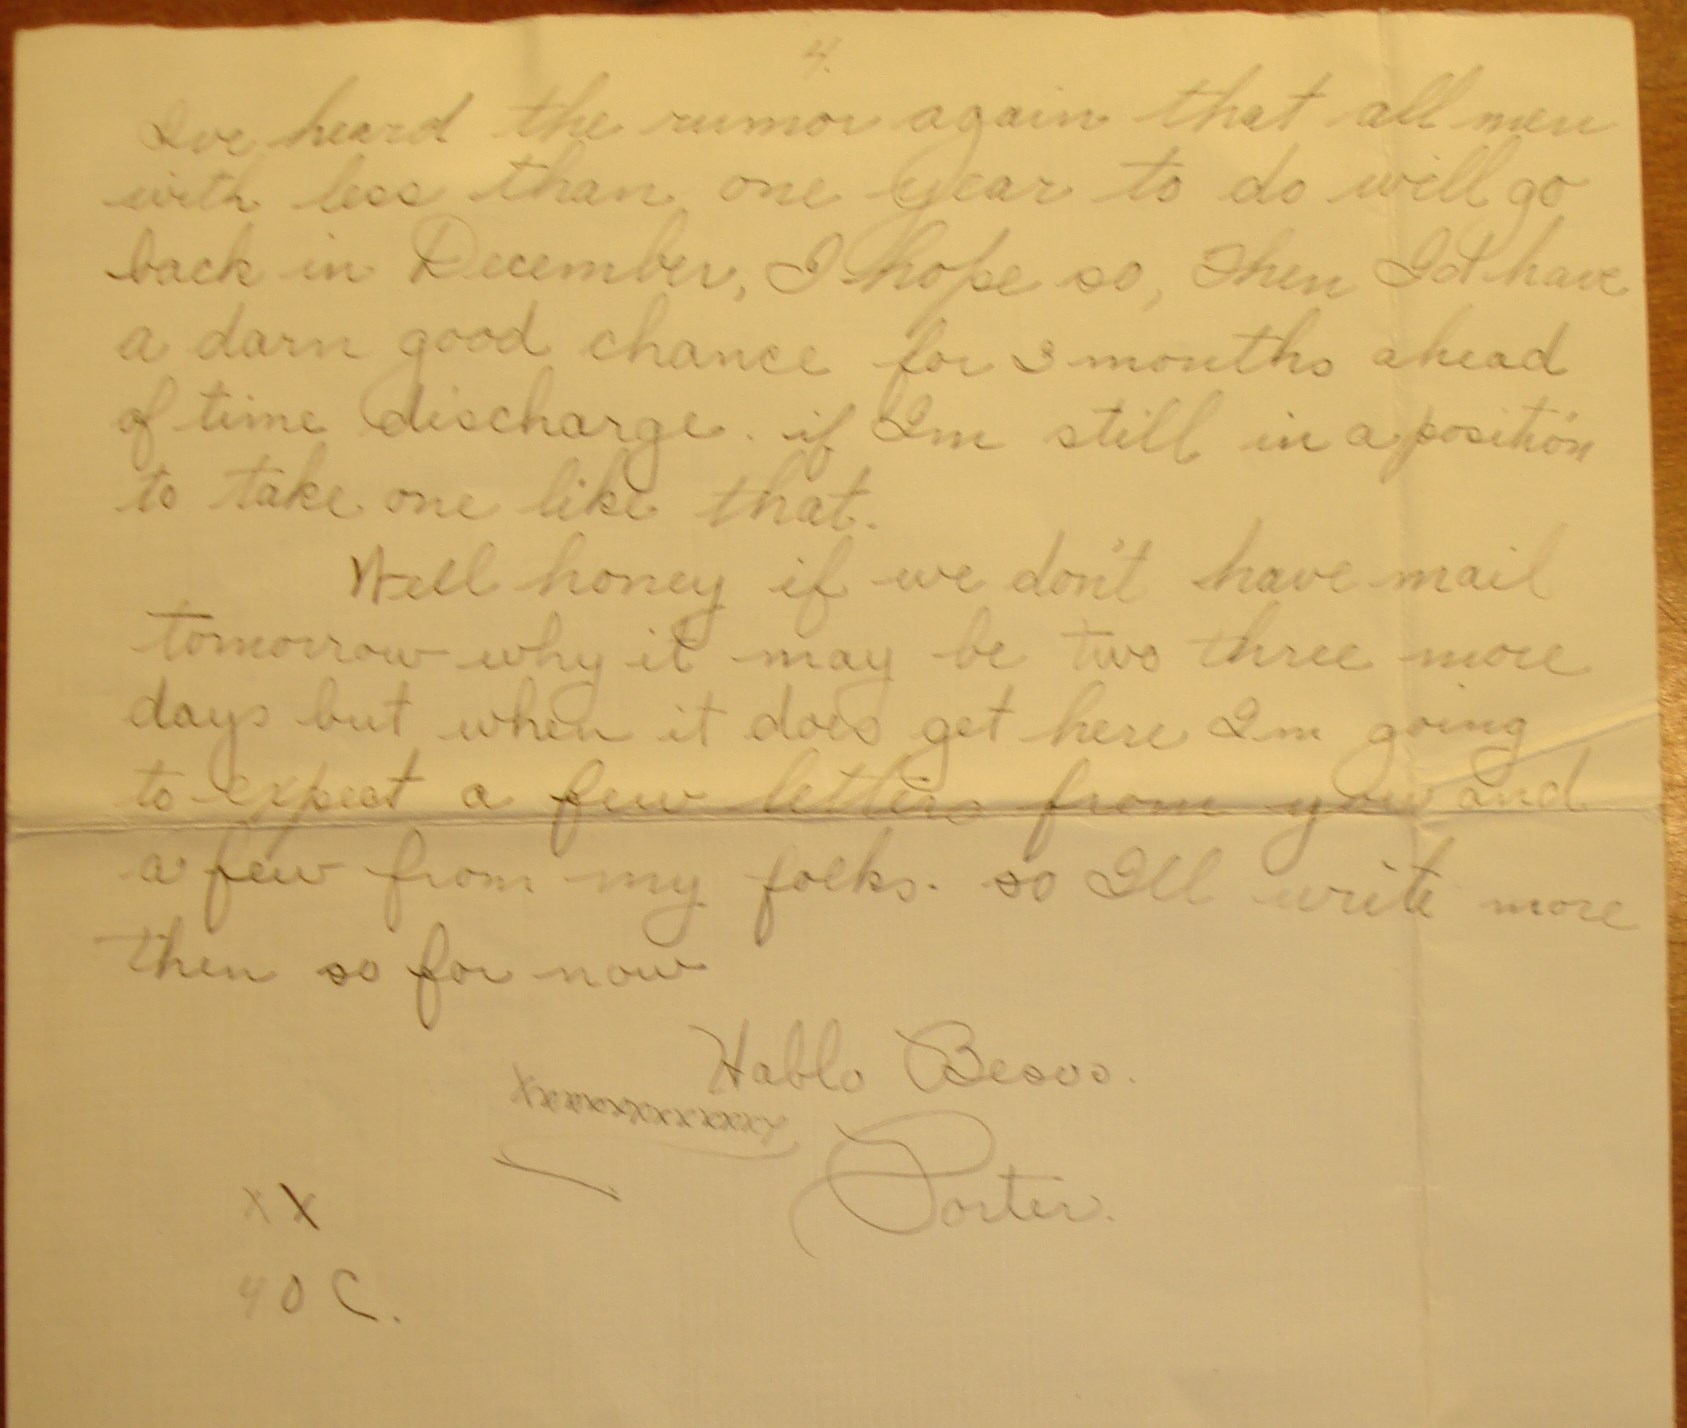 4.
Ive heard the rumor again that all men
with less than one year to do will go
back in December, I hope so, Then I'd have
a darn good chance for 3 months ahead
of time discharge. if Im still in a position
to take one like that.
Well honey if we don't have mail
tomorrow why it may be two three more
days but when it does get here Im going
to expect a few letters from you and
a few from my folks. so Ill write more
then so for now
Hablo Besos.
xxxxxxxxxxxxx
Porter.
xx
40C.